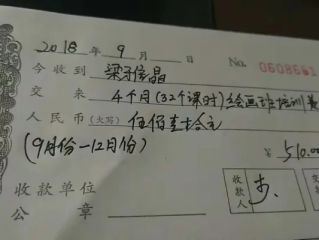 2018 年 9 月 日 No. 0608661
今 收 到 梁子俊晶
交 来 4个月(32个课时)绘画班培训费
人 民 币 (大写) 伍佰壹拾元
(9月份—12月份) ¥ 510.00
收 款 单 位
公 章
收款人